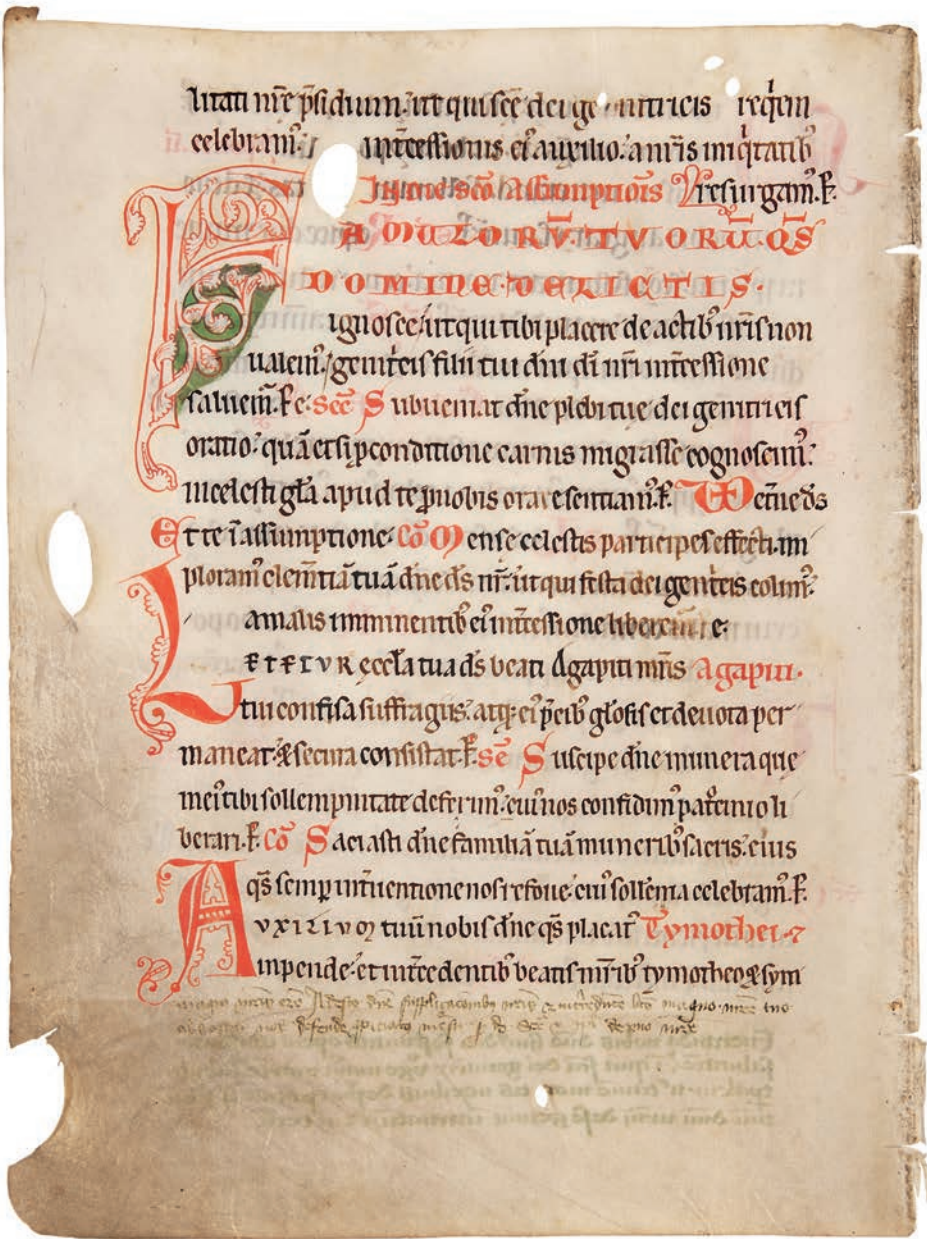 litati nr̄e p̄sidium. ut qui sc̄e dei ge nitricis req̇em
celebram᷒. int̄cessionis ei᷒ auxilio. a nr̄is iniq̇tatib᷒
In die sc̄o Assumptiōis resurgam᷒. P̄.
FAMULORŪ. TVORŪ. QS̄
DOMINE. DELICTIS.
ignosce. ut qui tibi placere de actib᷒ nr̄is non
ualem᷒. genit̄cis filii tui dn̄i dī nr̄i int̄cessione
saluem᷒. P̄ e. Sec̄ Subueniat dn̄e plebi tue dei genitricis
oratio. quā etsi p̱ conditione carnis migrasse cognoscim᷒.
in celesti gl̄a apud te p̄ nobis orare sentiam᷒. P̄. et̄ne ds̄
Et te ī assumptione. Cō Mense celestis participes effecti. im
ploram᷒ clem̄tiā tuā dn̄e ds̄ nr̄. ut qui festa dei genit̄cis colim᷒.
a malis imminentib᷒ ei᷒ int̄cessione liberem᷒ e.
LETETVR eccl̄a tua ds̄ beati Agapiti mr̄is Agapiti.
tui confisa suffragiis. atq; ei᷒ p̄cib᷒ gl̄osis et deuota per
maneat. & secura consistat. P̄. Sē Suscipe dn̄e munera que
in ei᷒ tibi sollempnitate deferim᷒. cui᷒ nos confidim᷒ pat̊cinio li
berari. P̄. Cō Saciasti dn̄e familiā tuā munerib᷒ sacris. eius
qs̄ semp̱ int̄uentione nos refoue. cui᷒ sollemia celebram᷒. P̄.
AVXILIVM tuū nobis dn̄e qs̄ placat᷒ Tymothei. ⁊
inpende. et int̄cedentib᷒ beatis mr̄ib᷒ tymotheo & sym
magno
defende